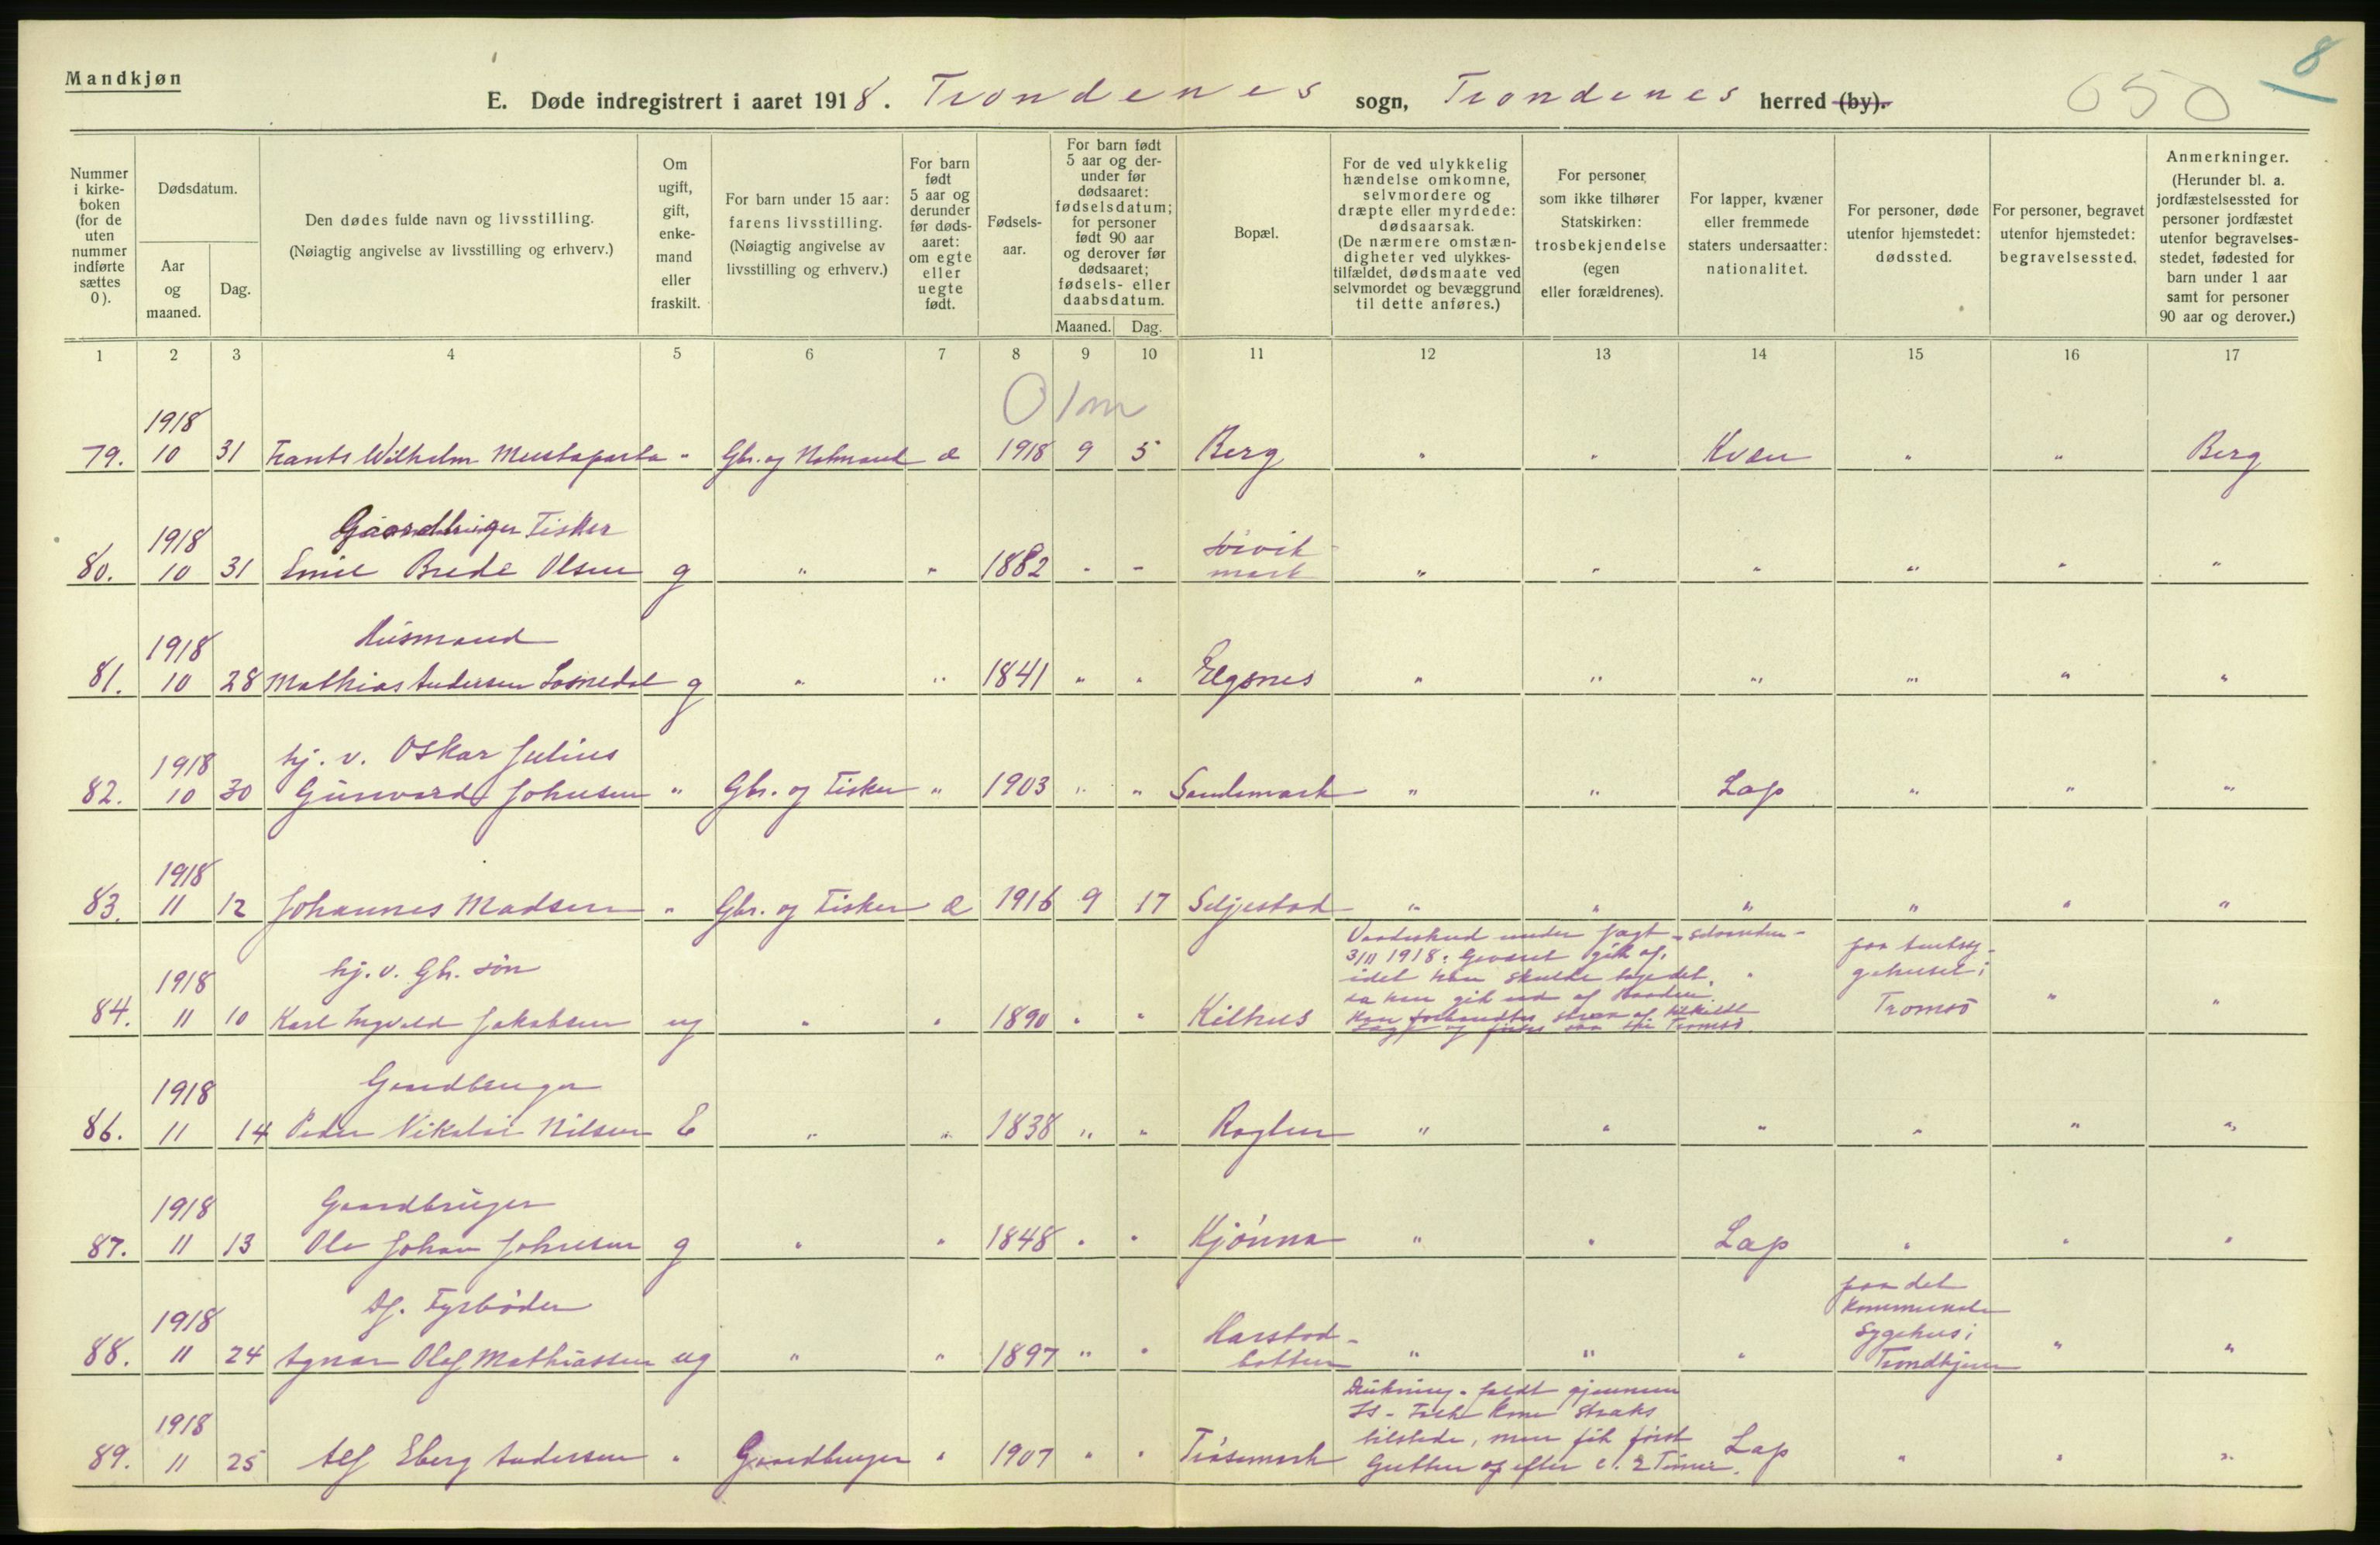 Mandkjøn
8
E. Døde indregistrert i aaret 1918. Trondenes sogn, Trondenes herred (by).
650
Nummer i kirkeboken (for de uten nummer indførte sættes 0).
Dødsdatum.
Aar og maaned.
Dag.
Den dødes fulde navn og livsstilling.
(Nøiagtig angivelse av livsstilling og erhverv.)
Om ugift, gift, enkemand eller fraskilt.
For barn under 15 aar: farens livsstilling. (Nøiagtig angivelse av livsstilling og erhverv.)
For barn født 5 aar og derunder før dødsaaret: om egte eller uegte født.
Fødselsaar.
For barn født 5 aar og derunder før dødsaaret: fødselsdatum; for personer født 90 aar og derover før dødsaaret; fødsels- eller daabsdatum.
Maaned.
Dag.
Bopæl.
For de ved ulykkelig hændelse omkomne, selvmordere og dræpte eller myrdede: dødsaarsak. (De nærmere omstændigheter ved ulykkestilfældet, dødsmaate ved selvmordet og bevæggrund til dette anføres.)
For personer, som ikke tilhører Statskirken: trosbekjendelse (egen eller forældrenes).
For lapper, kvæner eller fremmede staters undersaatter: nationalitet.
For personer, døde utenfor hjemstedet: dødssted.
For personer, begravet utenfor hjemstedet: begravelsessted.
Anmerkninger. (Herunder bl. a. jordfæstelsessted for personer jordfæstet utenfor begravelsesstedet, fødested for barn under 1 aar samt for personer 90 aar og derover.)
1 2 3 4 5 6 7 8 9 10 11 12 13 14 15 16 17
0 1m
1918
79. 10 31 Frants Wilhelm Mustaparta " Gbr. og Notmand e 1918 9 5 Berg " " Kvæn " " Berg
1918 Gaardbruger Fisker
80. 10 31 Emil Brede Olsen g " " 1882 " " mark " " " " " "
1918 Husmand
81. 10 28 Mathias Andersen g " " 1841 " " Elgsnes " " " " " "
1918 hj. v. Oskar Julius
82. 10 30 Gunvard Johnsen " Gbr. og Fisker " 1903 " " Sandsmark " " Lap " " "
1918
83. 11 12 Johannes Madsen " Gbr. og Fisker e 1916 9 17 Seljestad " " " " " "
Vaadeskud under Jagt
3/11 1918. Geværet gik af,
idet han skulde tage det,
da han gik ud af Baaden.
Han
og saa til Tromsø.
paa Amtssygehuset i Tromsø
1918 hj. v. Gbr. søn
84. 11 10 Karl Ingvald Jakobsen ug " " 1890 " " Kilhus " "
1918 Gaardbruger
86. 11 14 Peder Nikolai Nilsen E " " 1838 " " Roglen " " " " " "
1918 Gaardbruger
87. 11 13 Ole Johan Johnsen g " " 1848 " " Kjønna " " Lap " " "
paa det kommunale Sygehus i Trondhjem
1918 Fyrbøder
88. 11 24 Agnar Olaf Mathiassen ug " " 1897 " " Harstadbotten " " " " "
Drukning. Faldt gjennem
Is - Folk kom straks
tilstede, men fik først
Gutten op efter c. 2 Timer.
1918
89. 11 25 Alf Eberg Andersen " Gaardbruger " 1907 " " Lap " " "